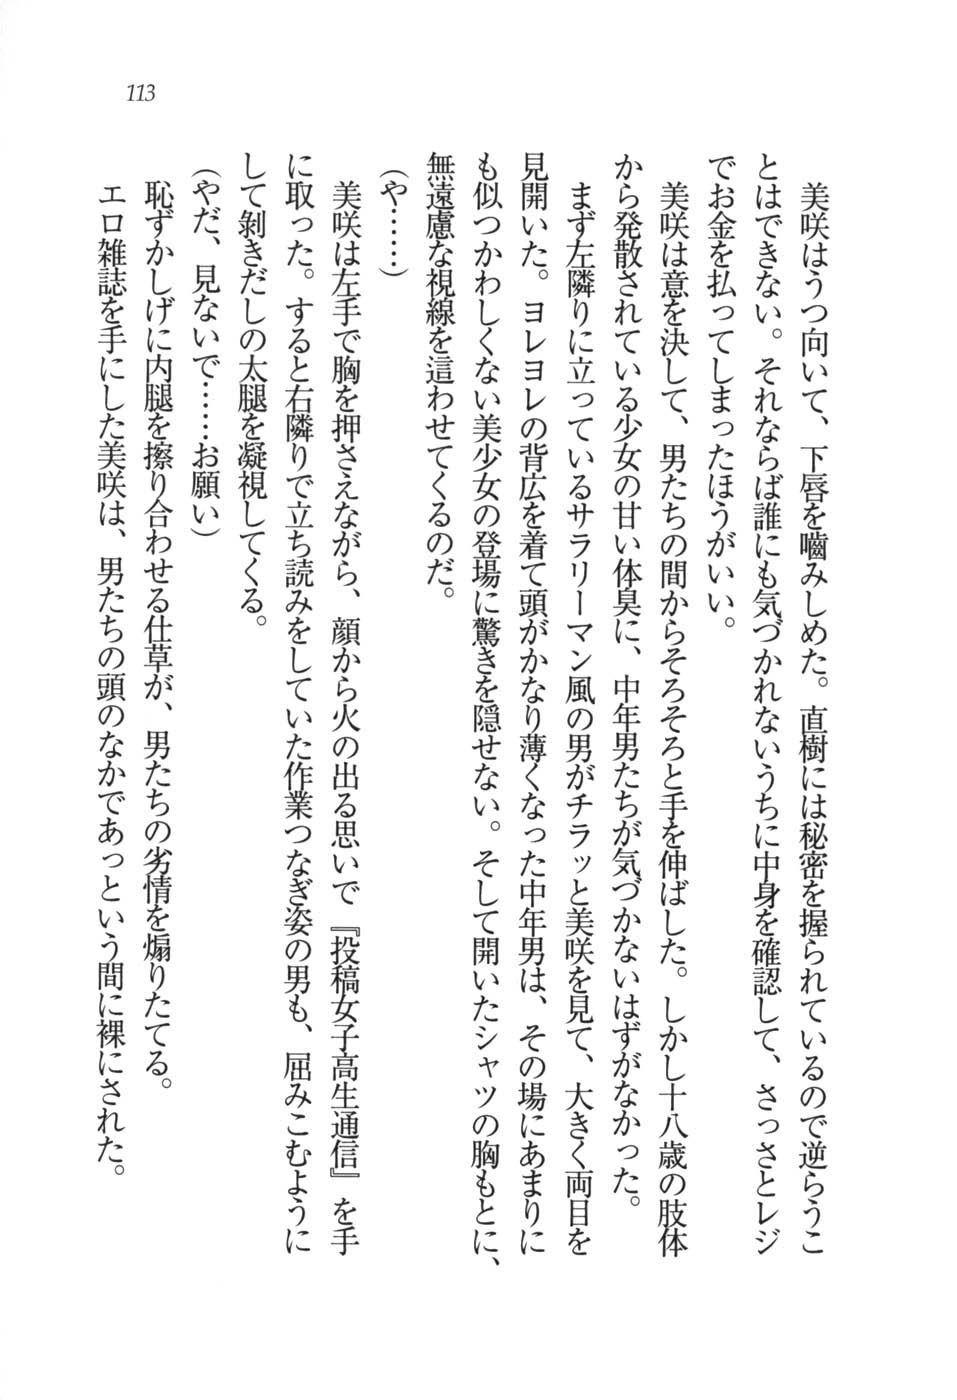 113
美咲はうつ向いて、下唇を噛みしめた。直樹には秘密を握られているので逆らうこ
とはできない。それならば誰にも気づかれないうちに中身を確認して、さっさとレジ
でお金を払ってしまったほうがいい。
美咲は意を決して、男たちの間からそろそろと手を伸ばした。しかし十八歳の肢体
から発散されている少女の甘い体臭に、中年男たちが気づかないはずがなかった。
まず左隣りに立っているサラリーマン風の男がチラッと美咲を見て、大きく両目を
見開いた。ヨレヨレの背広を着て頭がかなり薄くなった中年男は、その場にあまりに
も似つかわしくない美少女の登場に驚きを隠せない。そして開いたシャツの胸もとに、
無遠慮な視線を這わせてくるのだ。
(や……)
美咲は左手で胸を押さえながら、顔から火の出る思いで『投稿女子高生通信』を手
に取った。すると右隣りで立ち読みをしていた作業つなぎ姿の男も、屈みこむように
して剥きだしの太腿を凝視してくる。
(やだ、見ないで……お願い)
恥ずかしげに内腿を擦り合わせる仕草が、男たちの劣情を煽りたてる。
エロ雑誌を手にした美咲は、男たちの頭のなかであっという間に裸にされた。